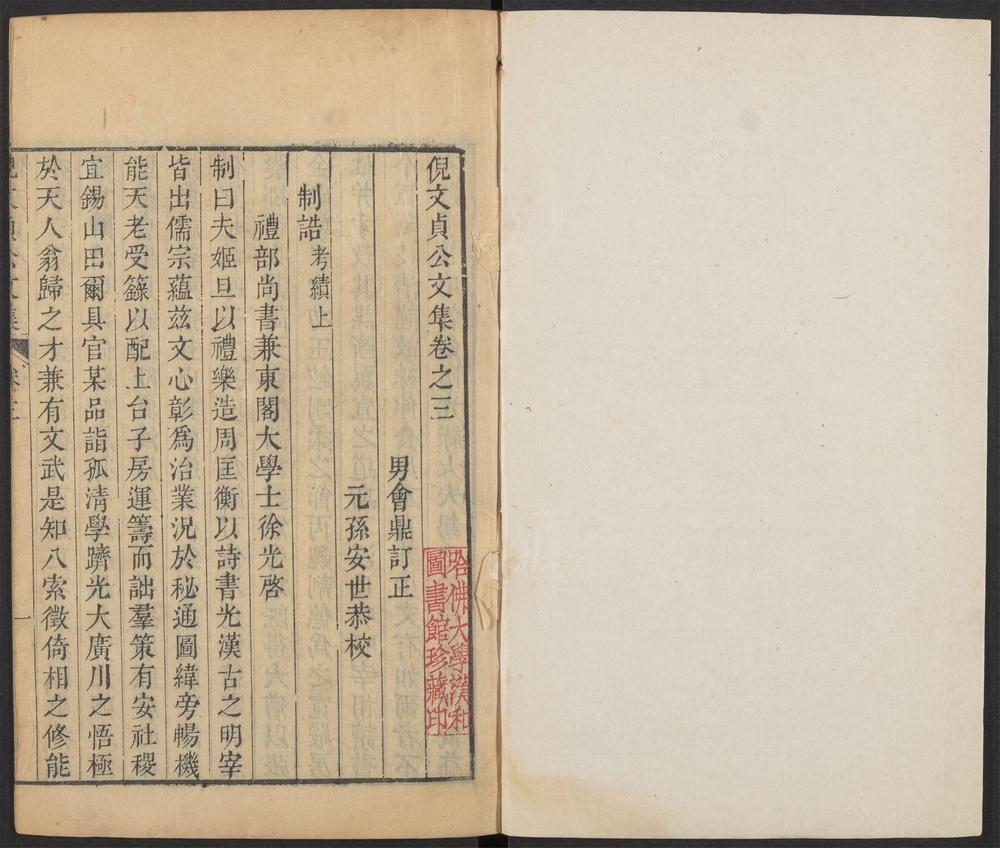 倪文貞公文集卷之三
男會鼎訂正
元孫安世恭校
制誥考績上
禮部尚書兼東閣大學士徐光啓
制曰夫姬旦以禮樂造周匡衡以詩書光漢古之明宰
皆出儒宗蘊茲文心彰爲治業況於秘通圖緯旁暢機
能天老受籙以配上台子房運籌而詘羣策有安社稷
宜錫山田爾具官某品詣孤清學躋光大廣川之悟極
於天人翁歸之才兼有文武是知八索徵倚相之修能
倪文貞公文集
卷之三
一
哈佛大學漢和
圖書館珍藏印